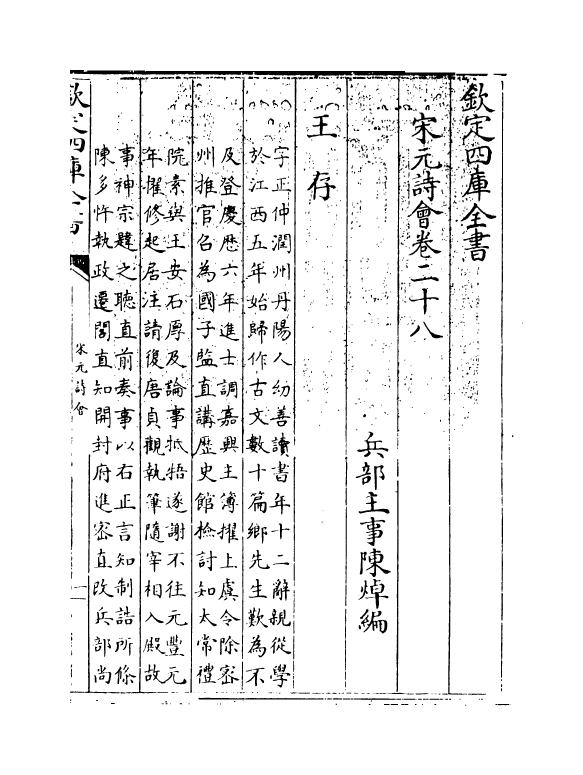 欽定四庫全書
宋元詩會卷二十八
兵部主事陳焯編
王存
字正仲潤州丹陽人幼善讀書年十二辭親從學
於江西五年始歸作古文數十篇鄉先生歎為不
及登慶歴六年進士調嘉興主簿擢上虞令除宻
州推官召為國子監直講歴史館檢討知太常禮
院素與王安石厚及論事抵牾遂謝不往元豐元
年擢修起居注請復唐貞觀執筆隨宰相入殿故
事神宗韙之聽直前奏事以右正言知制誥所條
陳多忤執政遷閣直知開封府進宻直改兵部尚
欽定四庫全書
宋元詩會
一